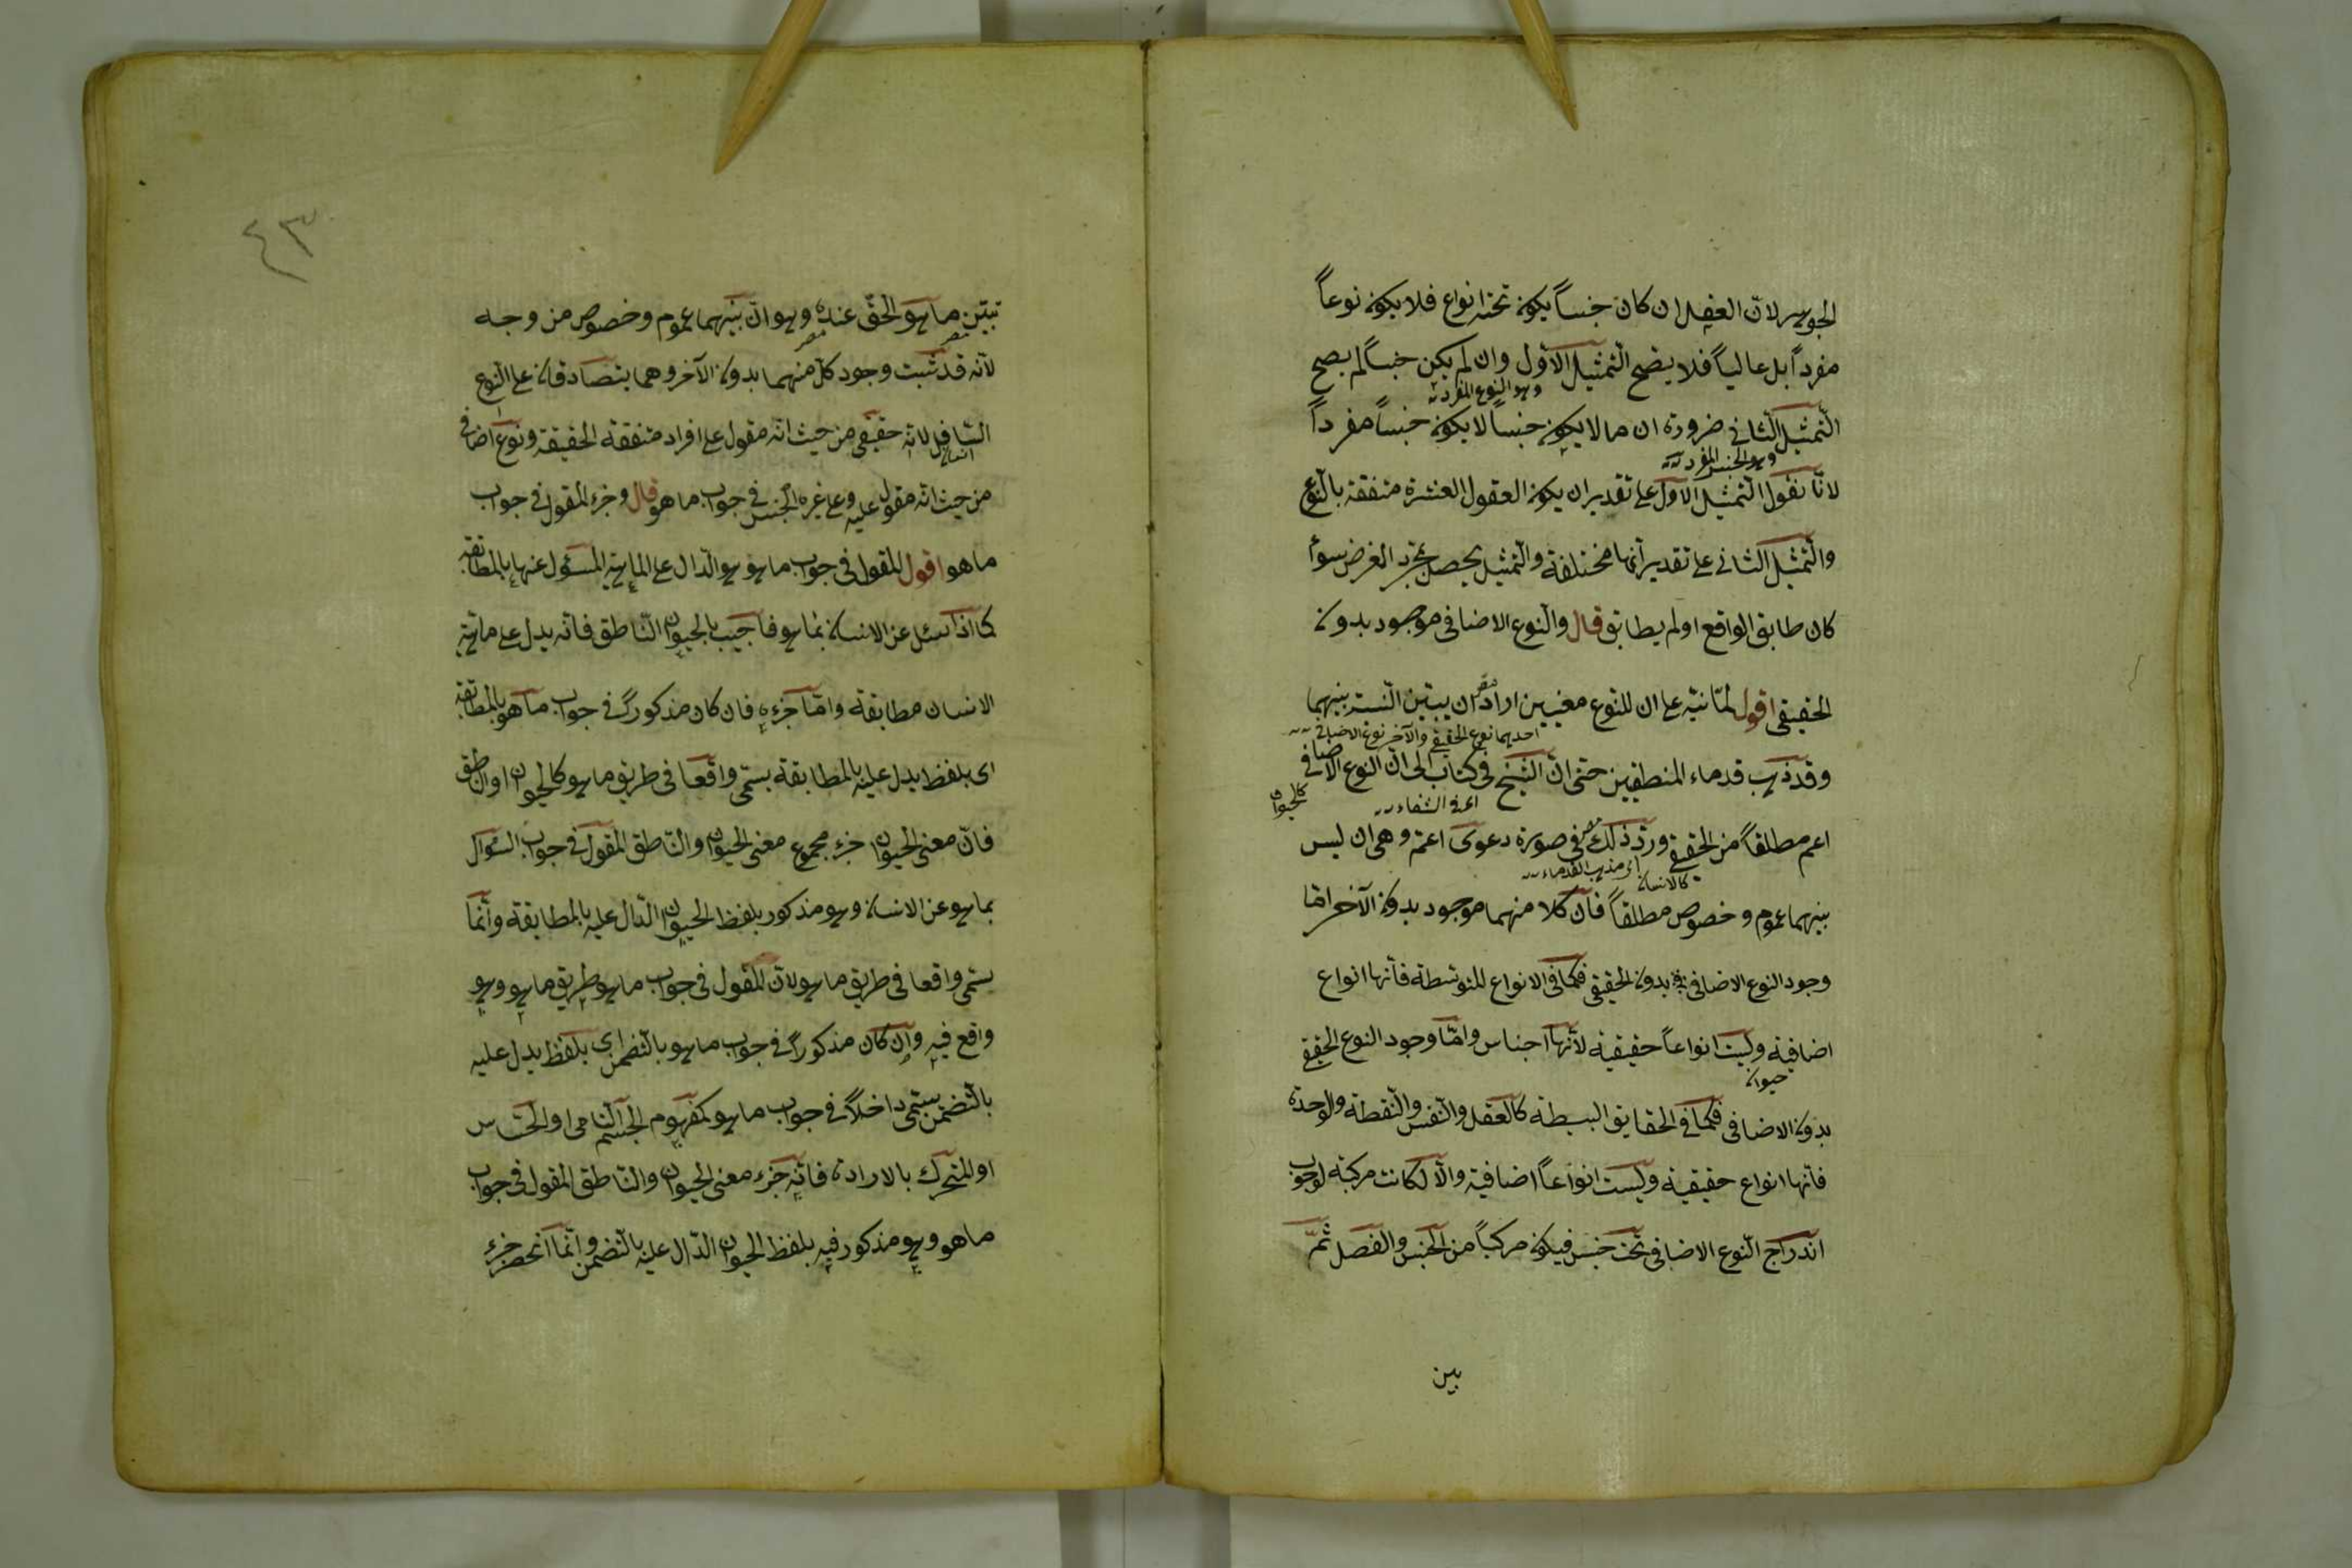 الجوهر لان العقل ان كان جنساً يكون تحته انواع فلا يكون نوعاً
مفرداً بل عالياً فلا يصح التمثيل الاوّل وان لم يكن جنساً لم يصح
وهو النوع المفرد
التمثيل الثانى ضرورة ان ما لا يكون جنساً لا يكون جنساً مفرداً
وهو الجنس المفرد
لانّا نقول التمثيل الاوّل على تقدير ان يكون العقول العشرة متفقة بالنّوع
والتمثيل الثانى على تقدير انّها مختلفة والتمثيل يحصل بمجرّد الفرض سواء
كان طابق الواقع او لم يطابق قال والنّوع الاضافى موجود بدون
الحقيقى اقول لمّا نبّه على ان للنّوع معنيين اراد ان يبيّن النسبة بينهما
احدهما نوع الحقيقى والآخر نوع الاضافى
وقد ذهب قدماء المنطقيين حتى انّ الشيخ فى كتاب الى انّ النوع الاضافى
كالحيوان
اعنى الشفاء
اعم مطلقاً من الحقيقى وردّ ذلك فى صورة دعوى اعم وهى ان ليس
اى مذهب القدماء
كالانسان
بينهما عموم وخصوص مطلقاً فانّ كلا منهما موجود بدون الآخر امّا
وجود النوع الاضافى بدون الحقيقى فكما فى الانواع المتوسّطة فانّها انواع
اضافية وليست انواعاً حقيقية لانّها اجناس وامّا وجود النوع الحقيقى
حيوان
بدون الاضافى فكما فى الحقايق البسيطة كالعقل والنّفس والنّقطة والوحدة
فانّها انواع حقيقية وليست انواعاً اضافية والّا لكانت مركبة لوجوب
اندراج النّوع الاضافى تحت جنس فيكون مركباً من الجنس والفصل ثمّ
بين
٤٣
تبيّن ما هو الحقّ عنده وهو انّ بينهما عموم وخصوص من وجه
لانّه قد ثبت وجود كلّ منهما بدون الآخر وهما يتصادقان على النّوع
السّافل لانّه حقيقى من حيث انّه مقول على افراد متفقة الحقيقة ونوع اضافى
انسان
من حيث انّه مقول عليه وعلى غيره الجنس فى جواب ما هو قال وجزء المقول فى جواب
ما هو اقول المقول فى جواب ما هو هو الدّال على الماهية المسئول عنها بالمطابقة
كما اذا سئل عن الانسان بما هو فاجيب بالحيوان النّاطق فانّه يدل على ماهية
الانسان مطابقة وامّا جزءه فان كان مذكوراً فى جواب ما هو بالمطابقة
اى بلفظ يدل عليه بالمطابقة يسمّى واقعا فى طريق ما هو كالحيوان او الناطق
فانّ معنى الحيوان جزء مجموع معنى الحيوان والنّاطق المقول فى جواب السّؤال
بما هو عن الانسان وهو مذكور بلفظ الحيوان الدّال عليه بالمطابقة وانّما
يسمّى واقعا فى طريق ما هو لانّ المقول فى جواب ما هو طريق ما هو وهو
واقع فيه وان كان مذكوراً فى جواب ما هو بالتّضمن اى بلفظ يدل عليه
بالتّضمن يسمّى داخلاً فى جواب ما هو كمفهوم الجسم النّامى او الحسّاس
او المتحرّك بالارادة فانّه جزء معنى الحيوان والنّاطق المقول فى جواب
ما هو وهو مذكور فيه بلفظ الحيوان الدّال عليه بالتّضمن وانّما انحصر جزء